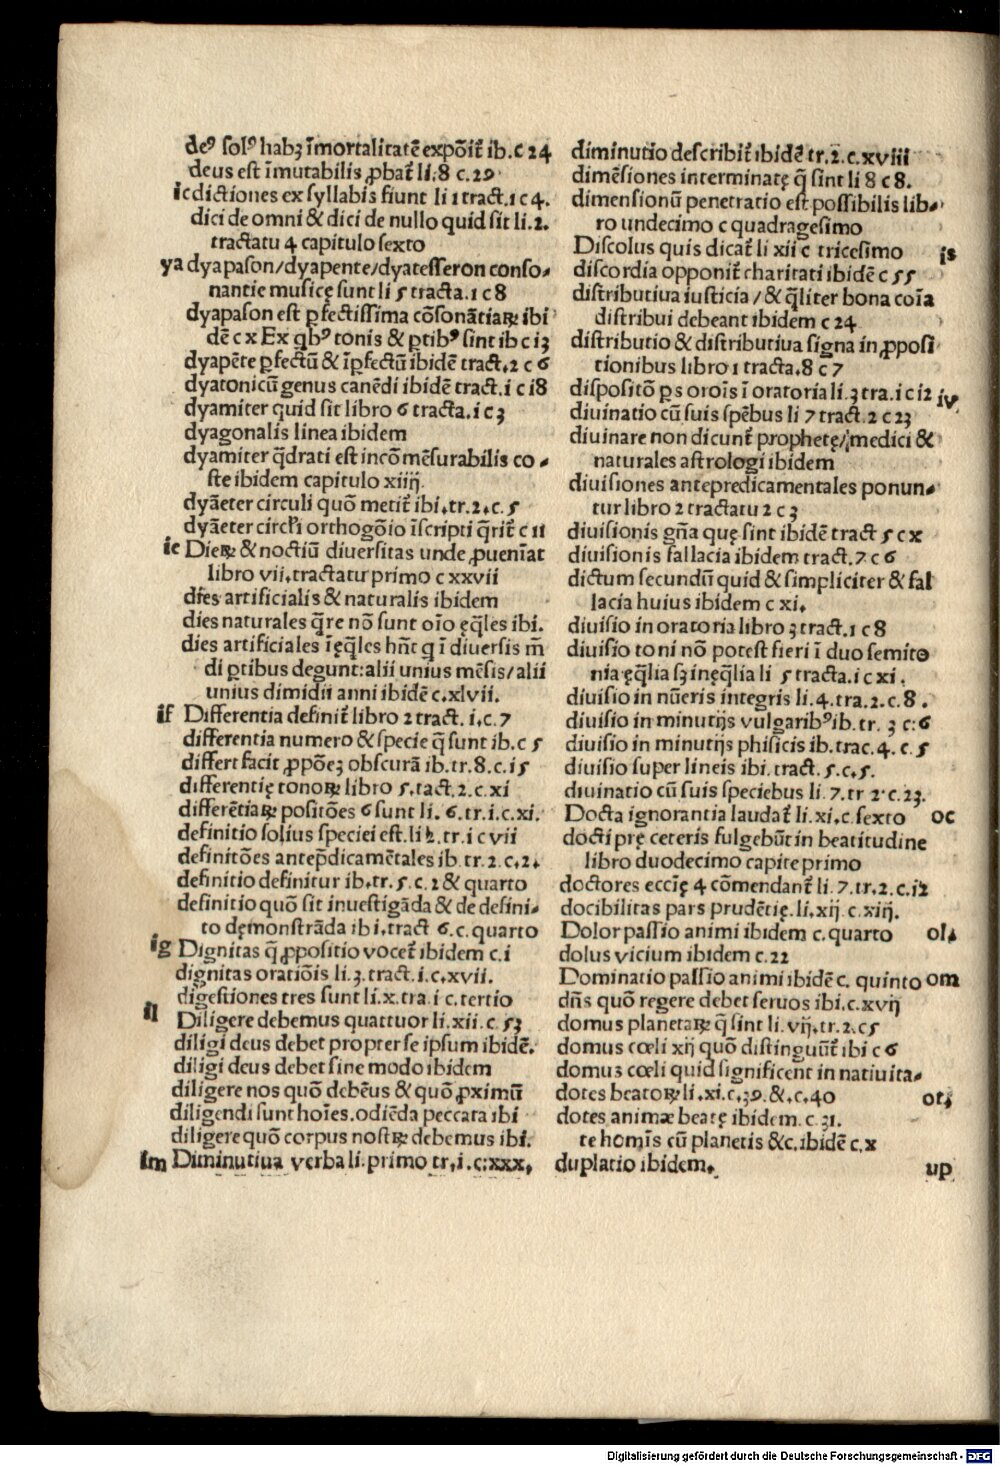 deꝰ solꝰ habꝫ īmortalitatē expōit̄ ib.c 24
deus est īmutabilis ꝓbat̄ li.8 c.29
ic dictiones ex syllabis fiunt li 1 tract.1 c 4.
dici de omni & dici de nullo quid sit li.2.
tractatu 4 capitulo sexto
ya dyapason/dyapente/dyatesseron conso⸗
nantie musicę sunt li 5 tracta.1 c 8
dyapason est ꝑfectissima cōsonātiaꝝ ibi
dē c x Ex qbꝰ tonis & ꝑtibꝰ sint ib c i3
dyapēte ꝑfectū & īꝑfectū ibidē tract.2 c 6
dyatonicū genus canēdi ibidē tract.i c i8
dyamiter quid sit libro 6 tracta.i c 3
dyagonalis linea ibidem
dyamiter q̄drati est incōmēsurabilis co⸗
ste ibidem capitulo xiiij
dyāeter circuli quō metit̄ ibi.tr.2.c.5
dyāeter circłi orthogōio īscripti q̄rit̄ c 11
ie Dieꝝ & noctiū diuersitas unde ꝓuenīat
libro vii.tractatu primo c xxvii
dīes artificialis & naturalis ibidem
dies naturales q̄re nō sunt oīo ęq̄les ibi.
dies artificiales īęq̄les hn̄t q ī diuersis m̄
di ꝑtibus degunt:alii unius mēsis/alii
unius dimidii anni ibidē c.xlvii.
if Differentia definit̄ libro 2 tract. i.c.7
differentia numero & specie q̄ sunt ib.c 5
differt facit ꝓpōeꝫ obscurā ib.tr.8.c.i5
differentię tonoꝝ libro 5.tact.2.c.xi
differētiaꝝ positōes 6 sunt li. 6.tr.i.c.xi.
definitio solius speciei est.li 2.tr.i c vii
definitōes antep̄dicamētales ib.tr.2.c.2.
definitio definitur ib.tr.5.c.2 & quarto
definitio quō sit inuestigāda & de defini⸗
to dęmonstrāda ibi.tract 6.c.quarto
ig Dignitas q̄ ꝓpositio vocet̄ ibidem c.i
dignitas oratiōis li.3.tract.i.c.xvii.
digestiones tres sunt li.x.tra.i c.tertio
il Diligere debemus quattuor li.xii.c.53
diligi deus debet propter se ipsum ibidē.
diligi deus debet sine modo ibidem
diligere nos quō debēus & quō ꝓximū
diligendi sunt hoīes.odiēda peccata ibi
diligere quō corpus nostꝝ debemus ibi.
im Diminutiua verba li.primo tr.i.c:xxx.
diminutio describit̄ ibidē tr.2.c.xviii
dimēsiones interminatę q̄ sint li 8 c 8.
dimensionū penetratio est possibilis lib⸗
ro undecimo c quadragesimo
Discolus quis dicat̄ li xii c tricesimo is
discordia opponit̄ charitati ibidē c 55
distributiua iusticia/& q̄liter bona coīa
distribui debeant ibidem c 24
distributio & distributiua signa in ꝓposi
tionibus libro 1 tracta.8 c 7
dispositō ꝑs oroīs ī oratoria li.3 tra.i c i2 iv
diuinatio cū suis spēbus li 7 tract.2 c 23
diuinare non dicunt̄ prophetę/medici &
naturales astrologi ibidem
diuisiones antepredicamentales ponun⸗
tur libro 2 tractatu 2 c 3
diuisionis gn̄a quę sint ibidē tract 5 c x
diuisionis fallacia ibidem tract.7 c 6
dictum secundū quid & simpliciter & fal
lacia huius ibidem c xi.
diuisio in oratoria libro 3 tract.1 c 8
diuisio toni nō potest fieri ī duo semito
nia ęq̄lia sꝫ inęq̄lia li 5 tracta.i c xi.
diuisio in nūeris integris li.4.tra.2.c.8.
diuisio in minutijs vulgaribꝰ ib.tr. 3 c:6
diuisio in minutijs phisicis ib.trac.4. c.5
diuisio super lineis ibi.tract.5.c.5.
diuinatio cū suis speciebus li.7.tr 2·c.23.
Docta ignorantia laudat̄ li.xi.c.sexto oc
docti prę ceteris fulgebūt in beatitudine
libro duodecimo capite primo
doctores eccīę 4 cōmendant̄ li.7.tr.2.c.i2
docibilitas pars prudētię.li.xij.c.xiij.
Dolor passio animi ibidem c.quarto ol.
dolus vicium ibidem c.22
Dominatio passio animi ibidē c. quinto om
dn̄s quō regere debet seruos ibi.c.xvij
domus planetaꝝ q̄ sint li.vij.tr.2.c5
domus cœli xij quō distinguūt̄ ibi c 6
domus cœli quid significent in natiuita⸗
dotes beatoꝝ li.xi.c.39.&.c.40 ot.
dotes animæ beatę ibidem.c.31.
te homīs cū planetis &c.ibidē c.x
duplatio ibidem. up
Digitalisierung gefördert durch die Deutsche Forschungsgemeinschaft - DFG